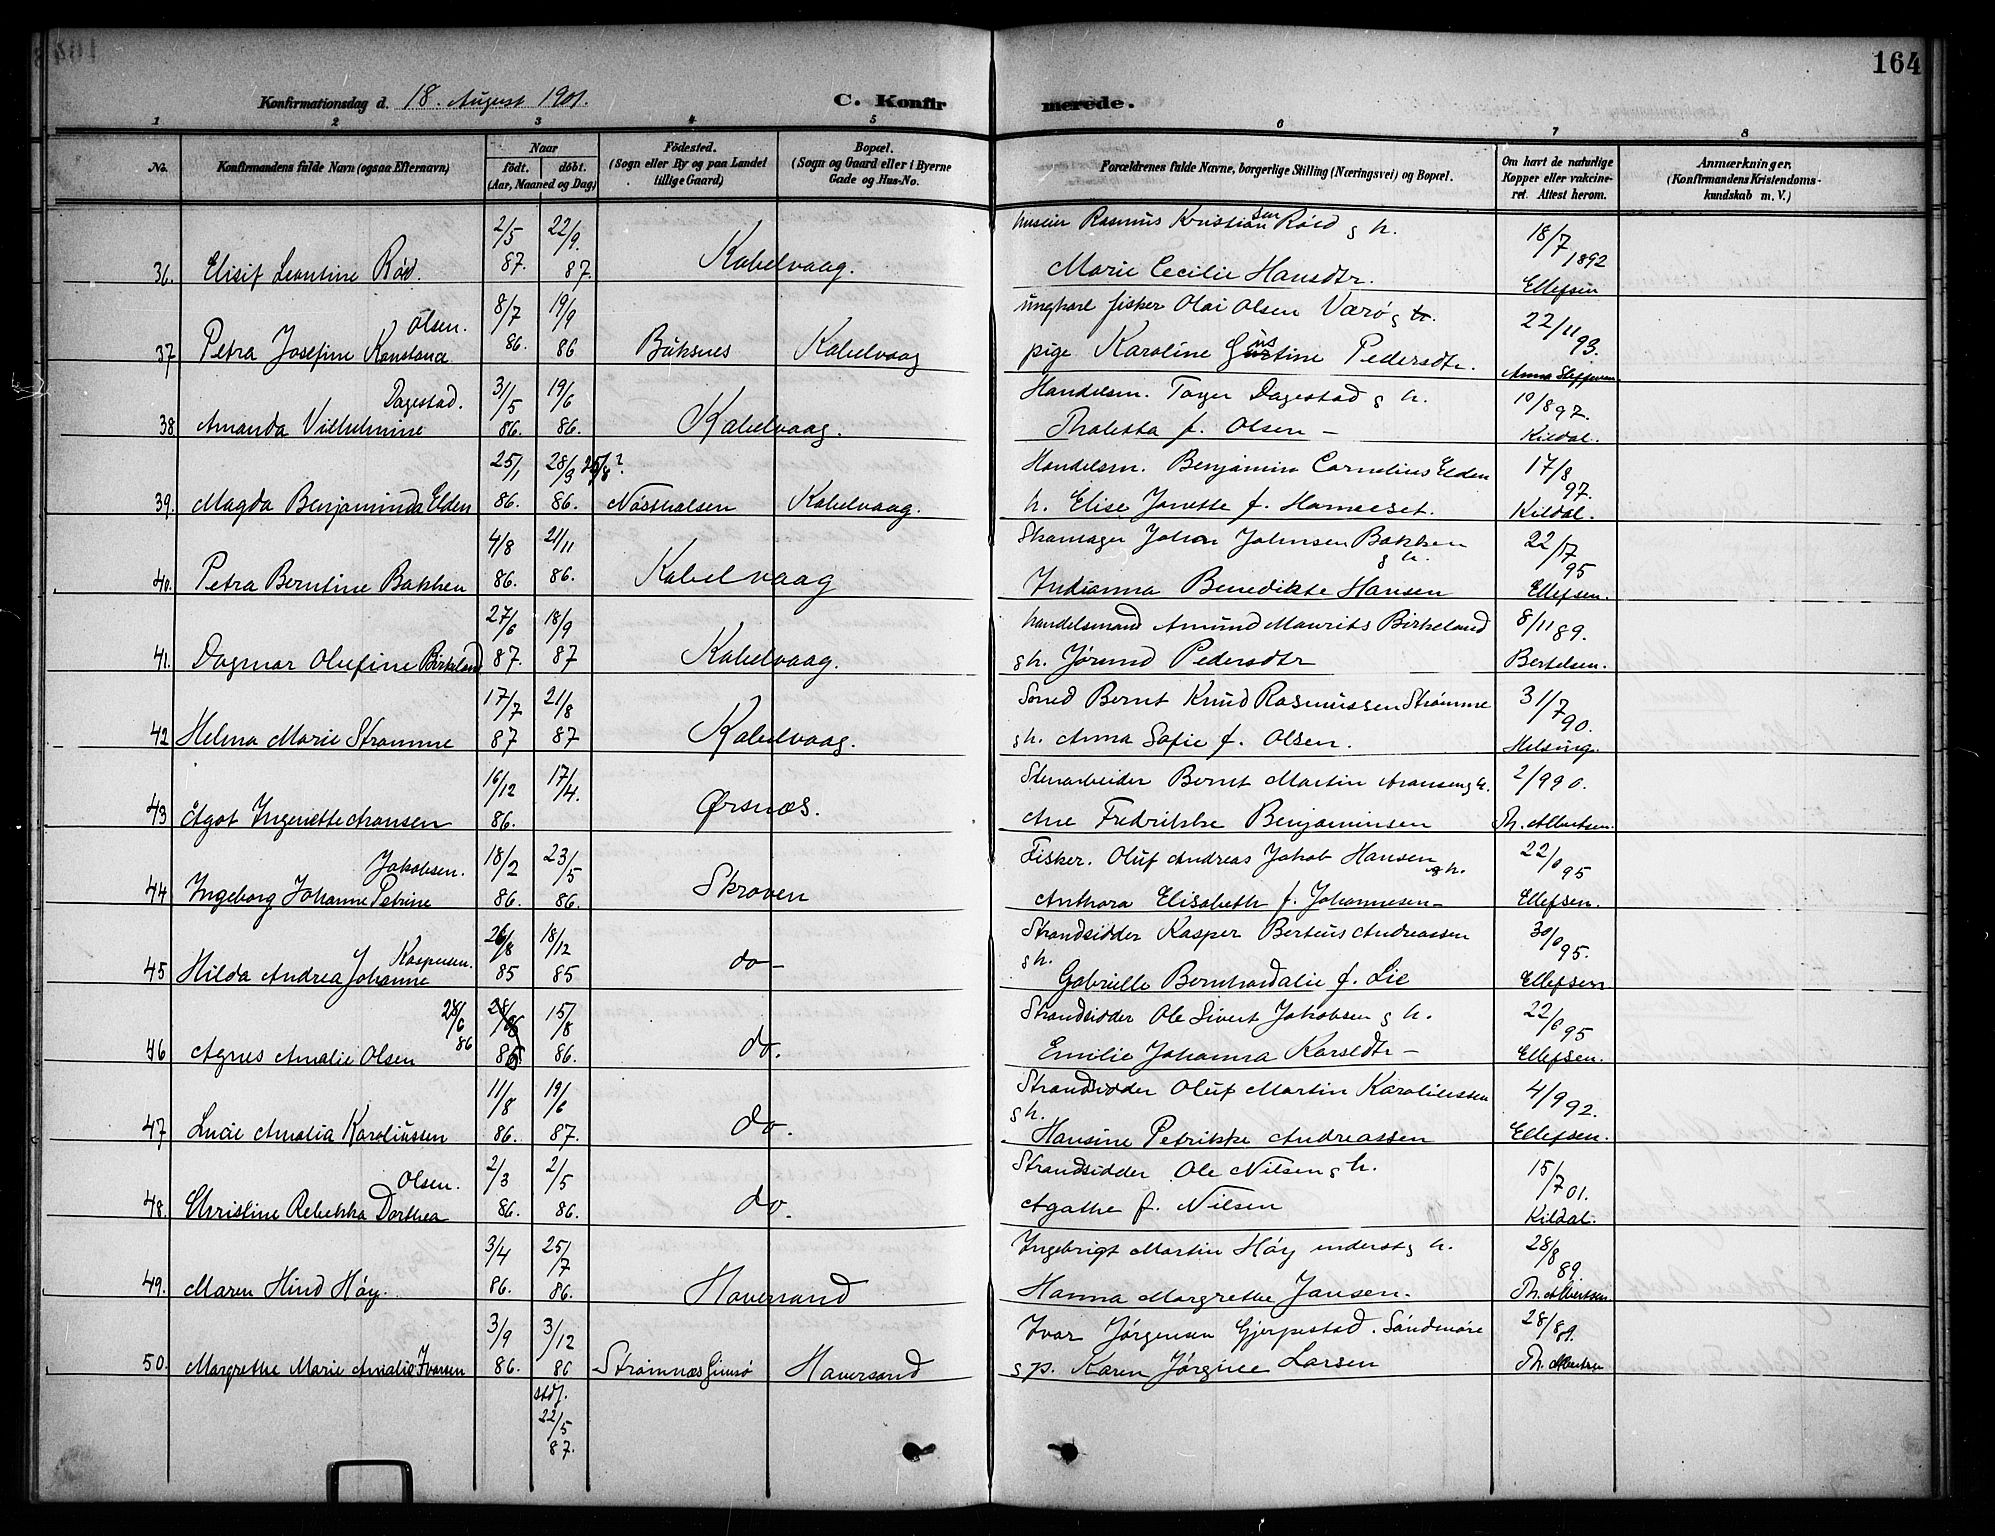 164
Konfirmationsdag d. 18. August 1901. C. Konfirmerede.
1 2 3 4 5 6 7 8
No. Konfirmandens fulde Navn (ogsaa Efternavn) Naar födt. döbt. (Aar, Maaned og Dag) Födested. (Sogn eller By og paa Landet tillige Gaard) Bopæl. (Sogn og Gaard eller i Byerne Gade og Hus-No. Forældrenes fulde Navne, borgerlige Stilling (Næringsvei) og Bopæl. Om havt de naturlige Kopper eller vakcineret. Attest herom. Anmærkninger. (Konfirmandens Kristendomskundskab m. V.)
2/5 22/9. Rasmus Kristiansen Röld g h. 18/7 1892
36. Elisif Leontine Röld. 87. 87. Kabelvaag. Marie Cecilie Hansdtr. Ellefsen
Olsen. 8/7 19/9 ungkarl fisker Olai Olsen Værö g 22/11 93.
37 Petra Josefine Konstance 86. 86 Buksnes Kabelvaag pige Karoline Pedersdtr.
Dagestad. 31/5 19/6 Handelsm. Dagestad g h. 19/8 97.
38. Amanda Vilhelmine 86. 86. Kabelvaag. Thaletta f. Olsen – Kildal.
25/1 28/3 25/8? Handelsm. Benjamin Cornelius Elden 17/8 97.
39. Magda Benjaminda Elden 86. 86. Kabelvaag. h. Elise Janette f. Kildal.
4/8 21/11 Skomager Johan Johnsen Bakken g h. 22/7 95
40. Petra Berntine Bakken 86. 86. Kabelvaag Indianna Benedikte Hansen Ellefsen.
27/6 18/9 handelsmand Amund Maurits Birkeland 8/11 89.
41. Dagmar Olufine Birkeland 87. 87 Kabelvaag. g h. Jörund Pedersdtr Bertelsen.
17/7 21/8 Smed Bernt Knud Rasmussen Strömme 31/7 90.
42 Helma Marie Strömme 87 87 Kabelvaag. g h. Anna Sofie f. Olsen. Helsing.
16/12 17/4. Stenarbeider Bernt Martin Aronsen g h. 2/9 90.
43 Ågot Ingenette Aronsen 86. Ørsnæs. Ane Fredrikke Benjaminsen Th. Albertsen.
Jakobsen. 18/2 23/5 Fisker. Oluf Andreas Jakob Hansen g h. 95
44 Ingeborg Johanne Petrine 86. 86. Skroven Anthora Elisabeth f. Johannesen – Ellefsen.
Kaspersen. 26/8 18/12 Strandsidder Kasper Berteus Andreassen 95.
45 Hilda Andrea Johanne 85 85 do – g h. Gabrielle Bernhardalie f. Lie Ellefsen
28/6 86 15/8 Strandsidder Ole Sivert Jakobsen g h. 22/6 95
46 Agnes Amalie Olsen 86. do. Emilie Johanna Karsldtr – Ellefsen.
11/8 19/6 Strandsidder Oluf Martin Karoliussen 4/9 92.
47 Lucie Amalia Karoliussen 86. 87. do. g h. Hansine Petrikke Andreassen Ellefsen.
Olsen. 2/3 2/5 Strandsidder Ole Nilsen g h. 15/7 01.
48. Christine Rebekka Dorthea 86. 86. do. Agathe f. Nilsen Kildal.
3/4 25/7 Ingebrigt Martin Höy inderst g h. 28/8 89.
49. Maren Hind Höy. 86. 86. Haversand Hanna Margrethe Jansen. Th. Albertsen
3/9 3/12 Ivar Jörgensen Gjerpestad. Söndmöre 28/8
50. Margrethe Marie Amalie Ivarsen 86. 86 Strömnæs Gimsö Haversand g p. Karen Jörgine Larsen Th. Albertsen
stdf.
22/5
87.